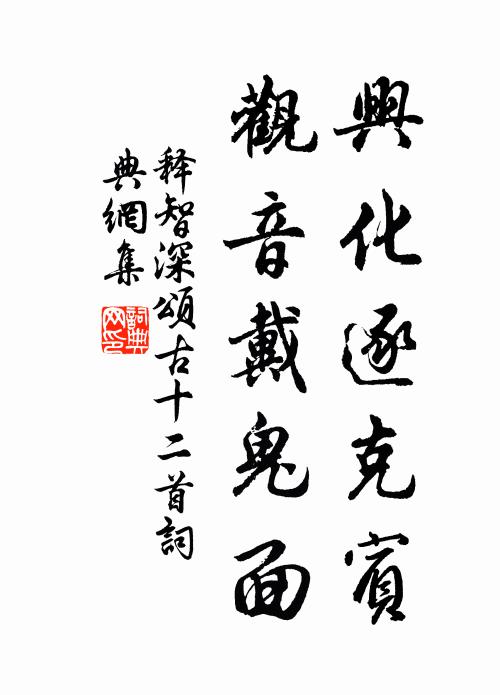 興化逐克賓
觀音戴鬼面
释智深頌古十二首詞
典網集
詞典
网印